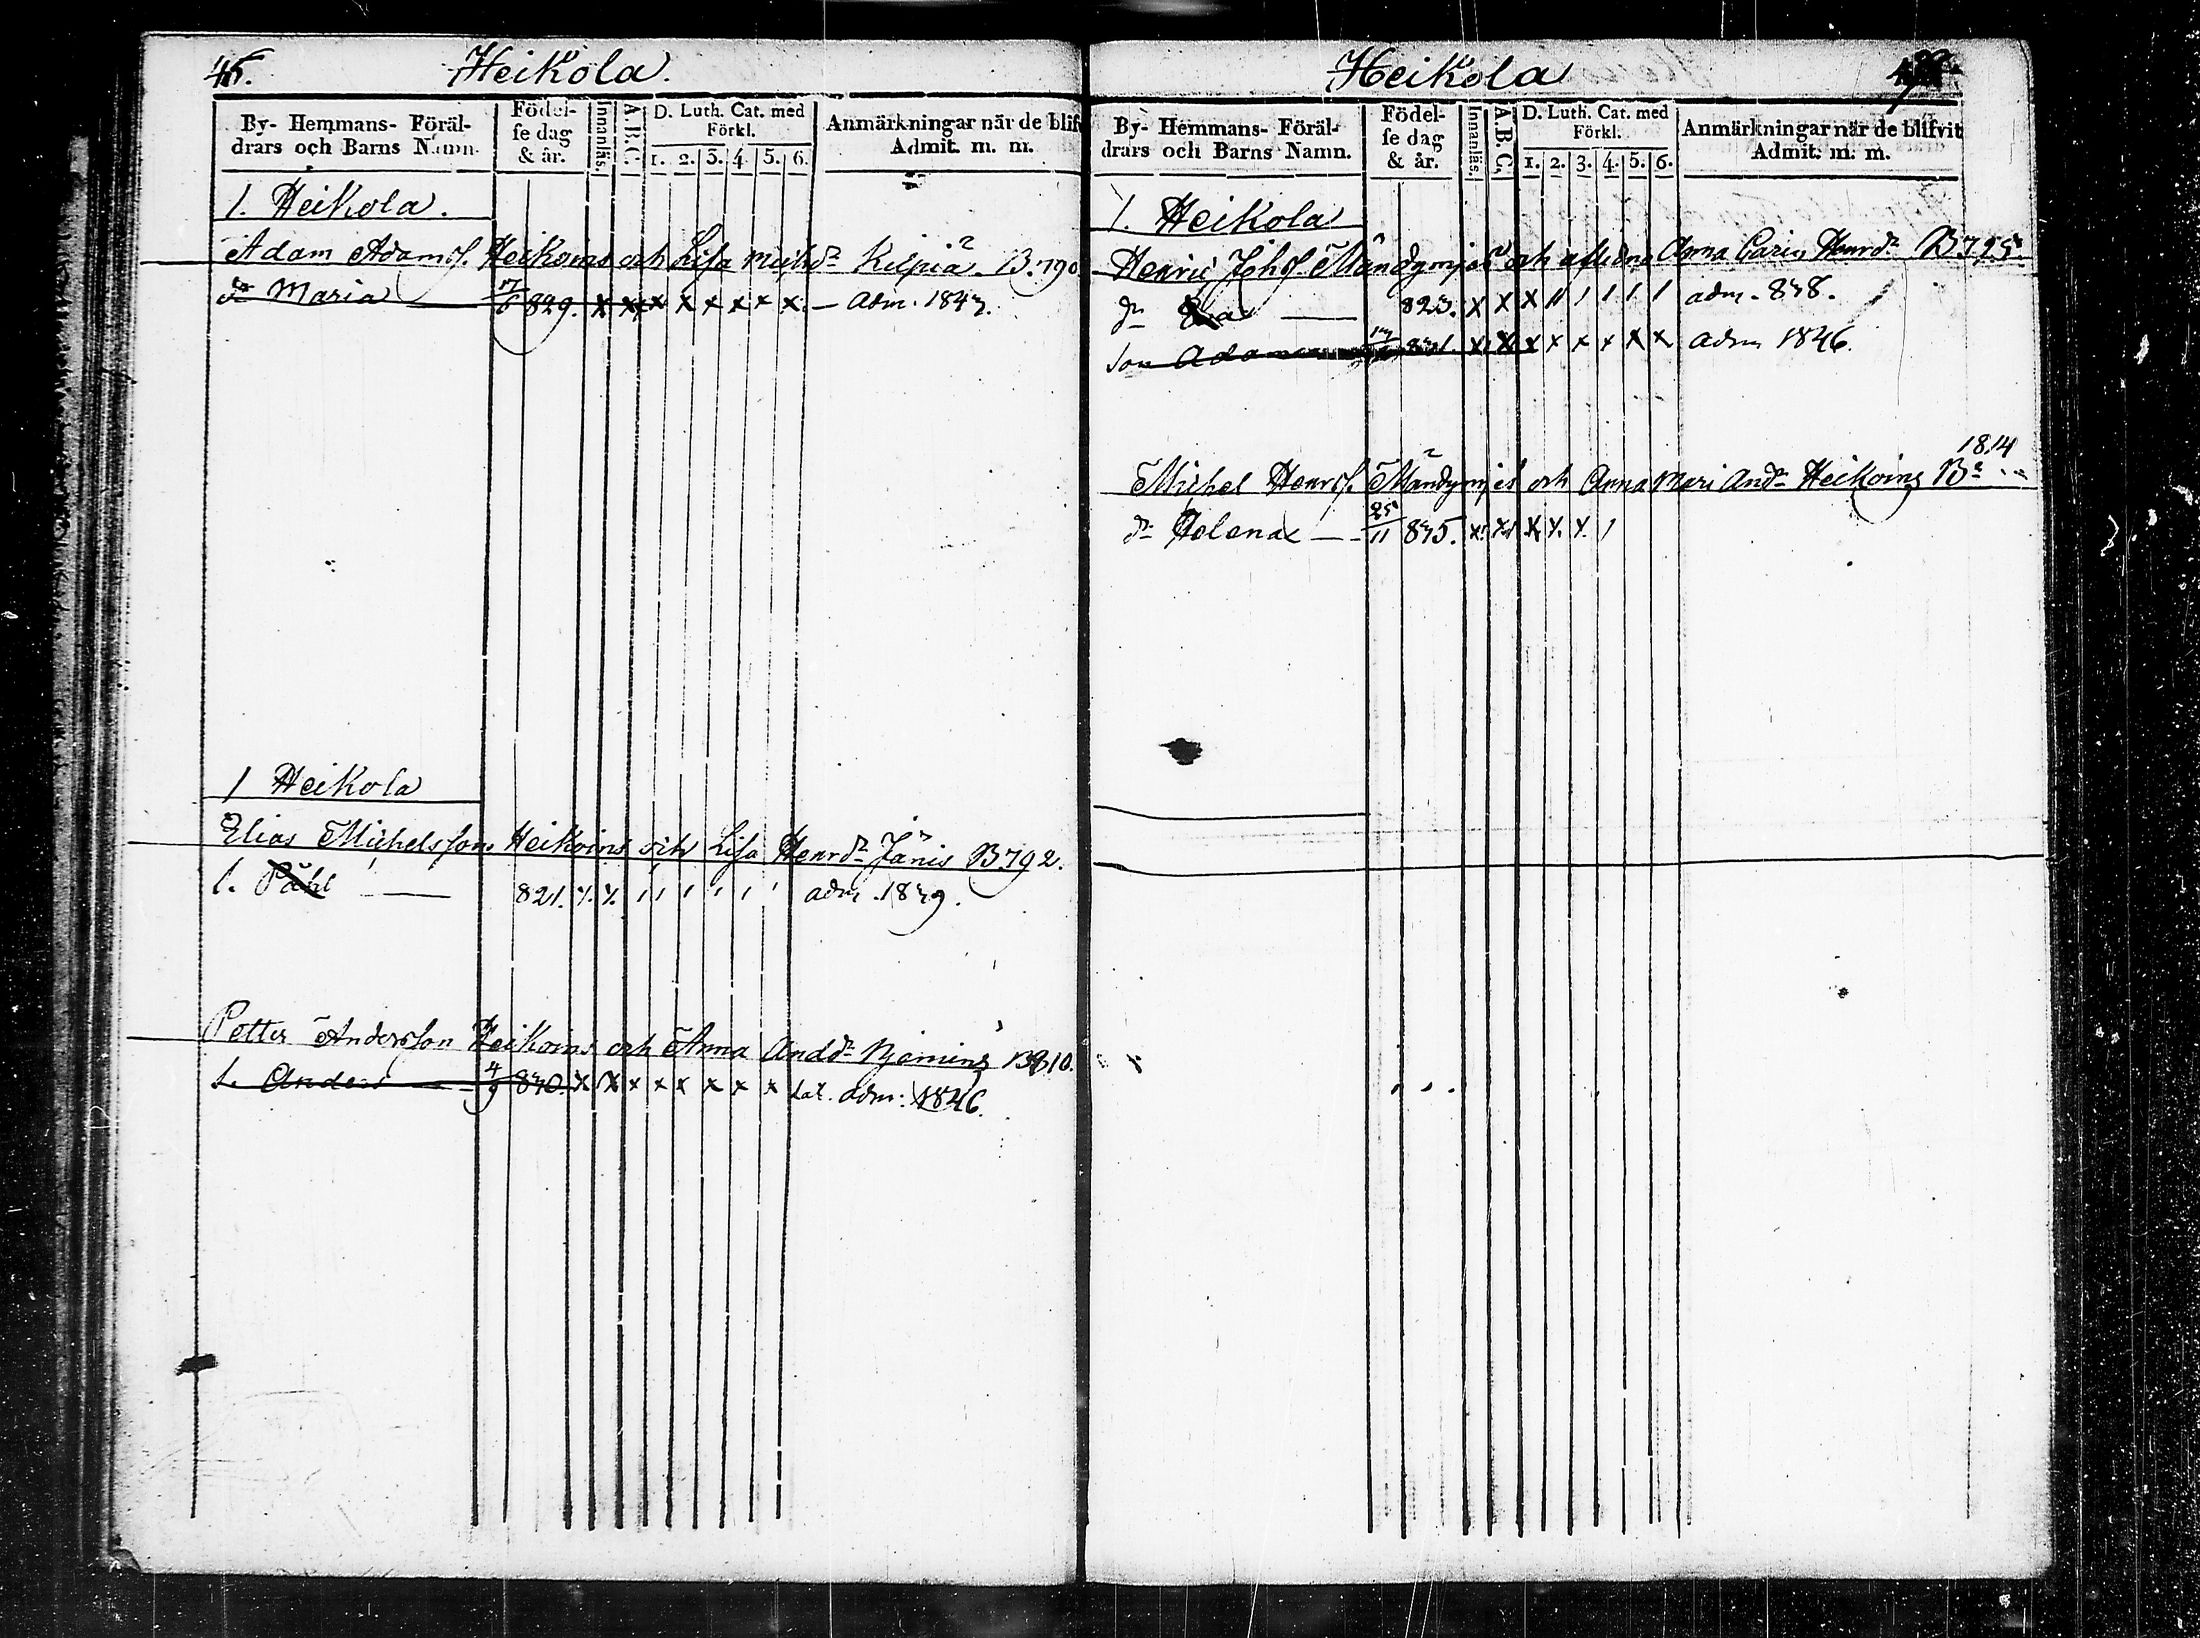 Heikola.
By- Hemmans- Föräl-
drars och Barns Namn.
Födel-
se dag
& år.
Innanläs.
A.B.C.
D. Luth. Cat. med
Förkl.
1. 2. 3. 4. 5. 6.
Anmärkningar när de blifv
Admit. m. m.
1. Heikola.
Adam Adamss. Heikoins och Lisa Michsdr Kilpiä B. 790
dr Maria 829. x x x x x x x x adm. 1843.
1 Heikola
Elias Michelsson Heikoins och Lisa Henrdr Jänis B 792.
s. Påhl 821. adm. 1839.
Petter Andersson Heikoins och Anna Anddr B 810.
s. Anders 4/9 830. x x x x x x x x adm: 1846.
Heikola
By- Hemmans- Föräl-
drars och Barns Namn.
Födel-
se dag
& år.
Innanläs.
A.B.C.
D. Luth. Cat. med
Förkl.
1. 2. 3. 4. 5. 6.
Anmärkningar när de blifvit
Admit. m. m.
1. Heikola
Henric Johss. och aflidna Anna Carin Henrdr B 795.
dr 823. x x x 11 1 1 1 1 adm. 838.
son Adam 831. x x x x x x x x adm 1846.
1814
Michel Henrss. och Anna Mari Anddr Heikoins Br
dr Helena 25/11 835.